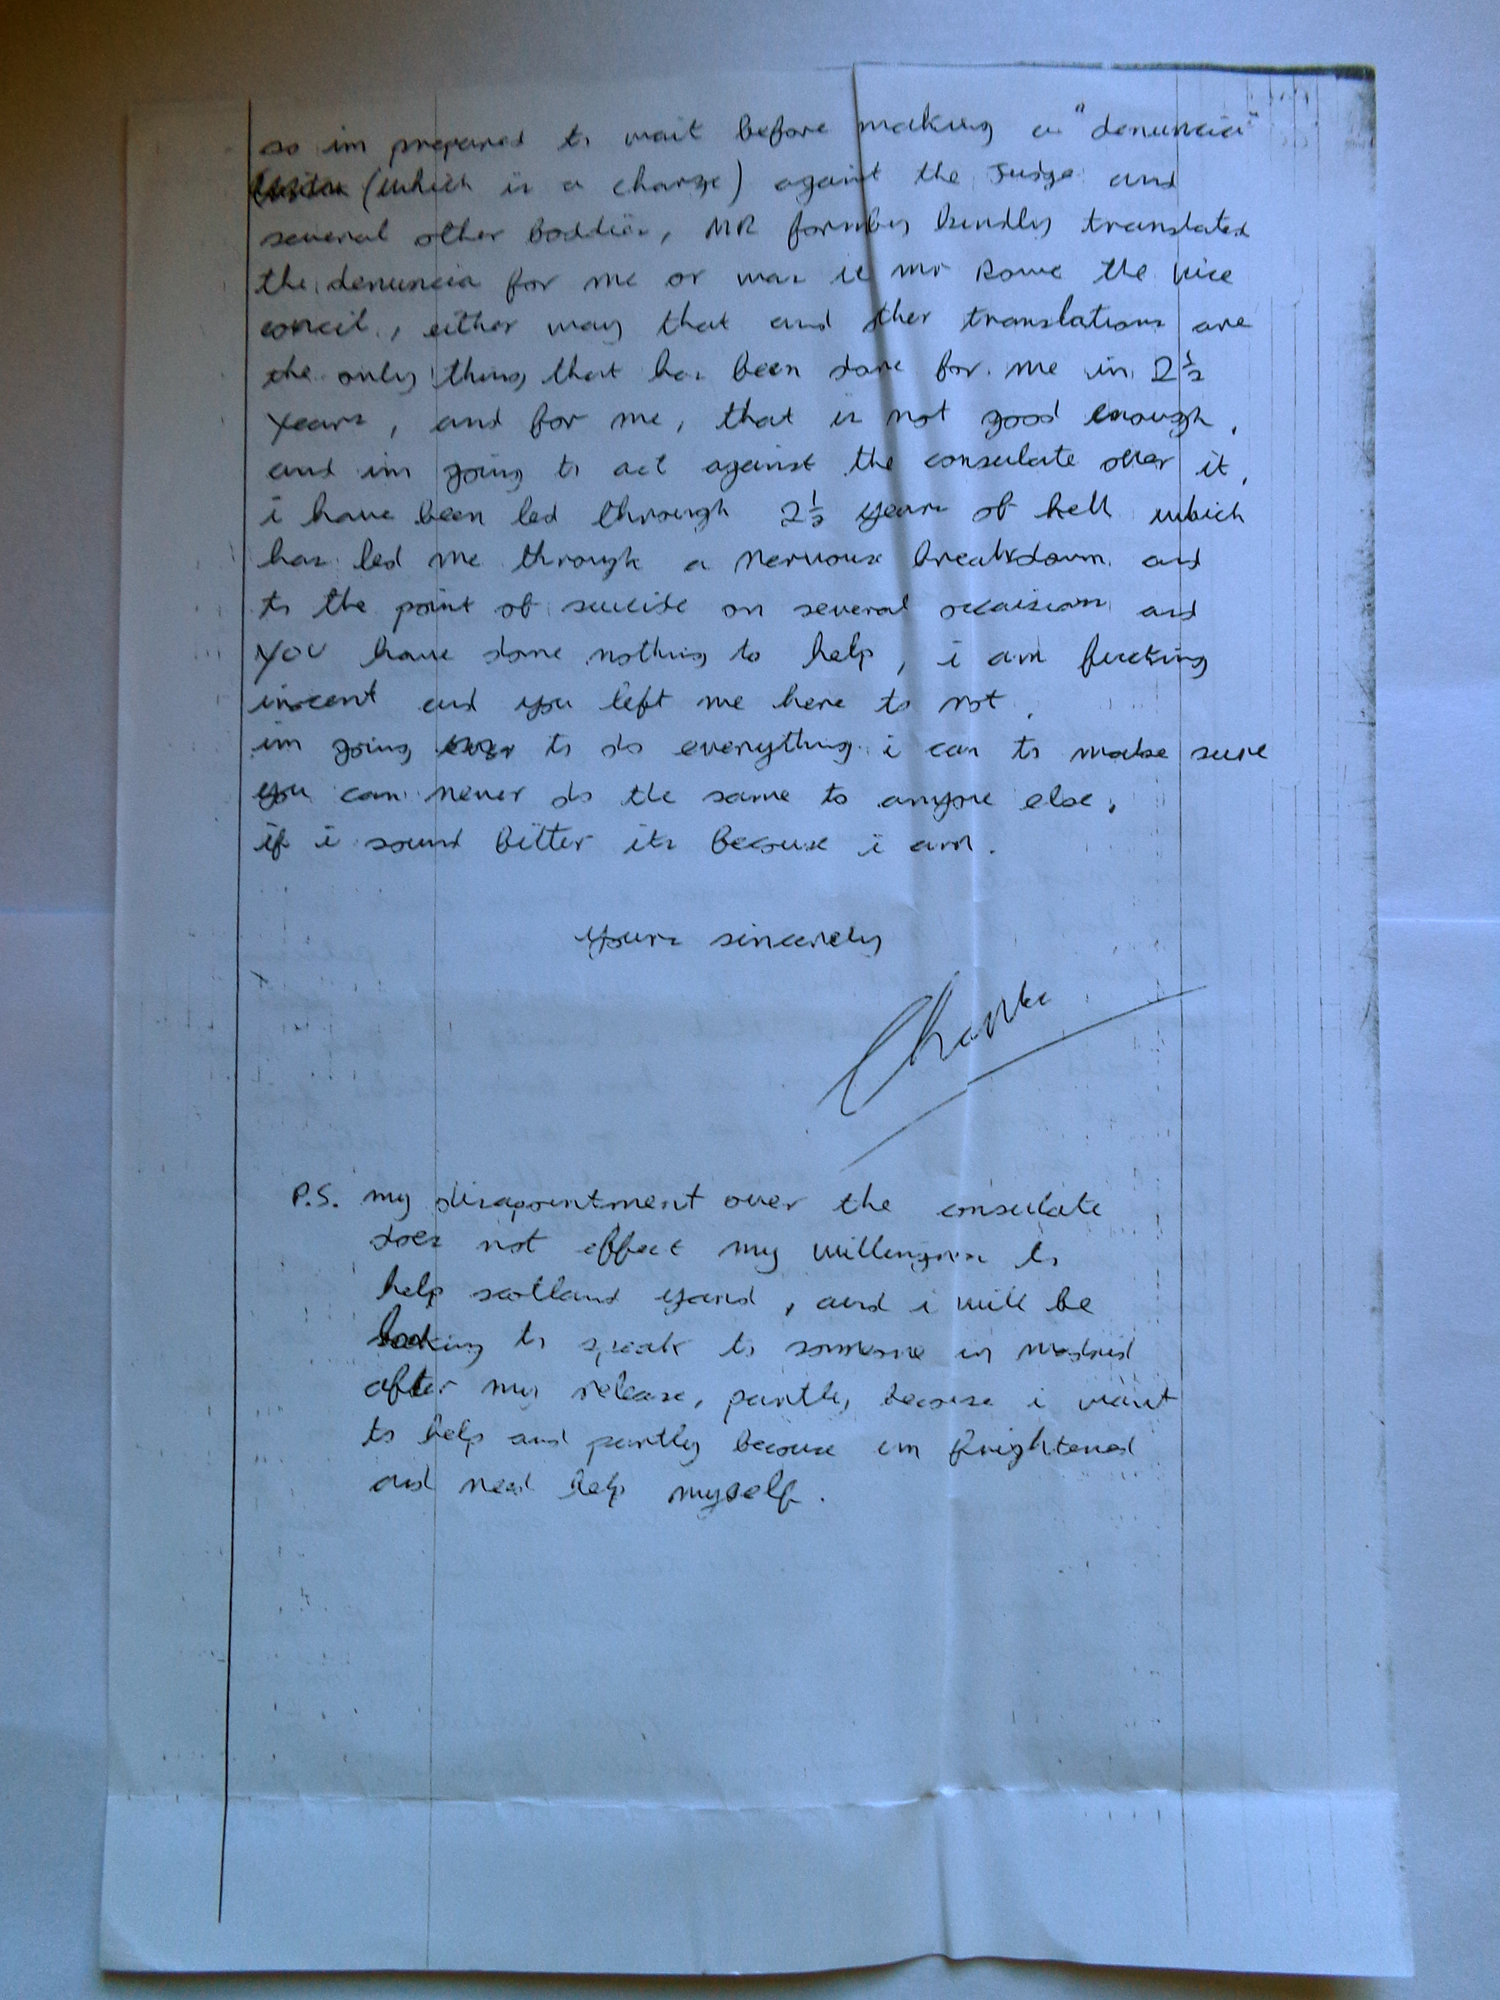 so im prepared to wait before making a "denuncia"
(which is a charge) against the Judge and
several other boddies, MR formby kindly translated
the denuncia for me or was it mr Rowe the vice
concil, either way that and other translations are
the only thing that has been done for me in 2½
years, and for me, that is not good enough,
and im going to act against the consulate over it,
i have been led through 2½ years of hell which
has led me through a nervous breakdown and
to the point of suicide on several occaisions and
YOU have done nothing to help, i am fucking
inocent and you left me here to rot.
im going to do everything i can to make sure
you can never do the same to anyone else,
if i sound bitter its because i am.
yours sincerely
Charlie
P.S. my disapointment over the consulate
does not effect my willingness to
help scotland yard, and i will be
looking to speak to someone in madrid
after my release, partly because i want
to help and partly because im frightened
and need help myself.